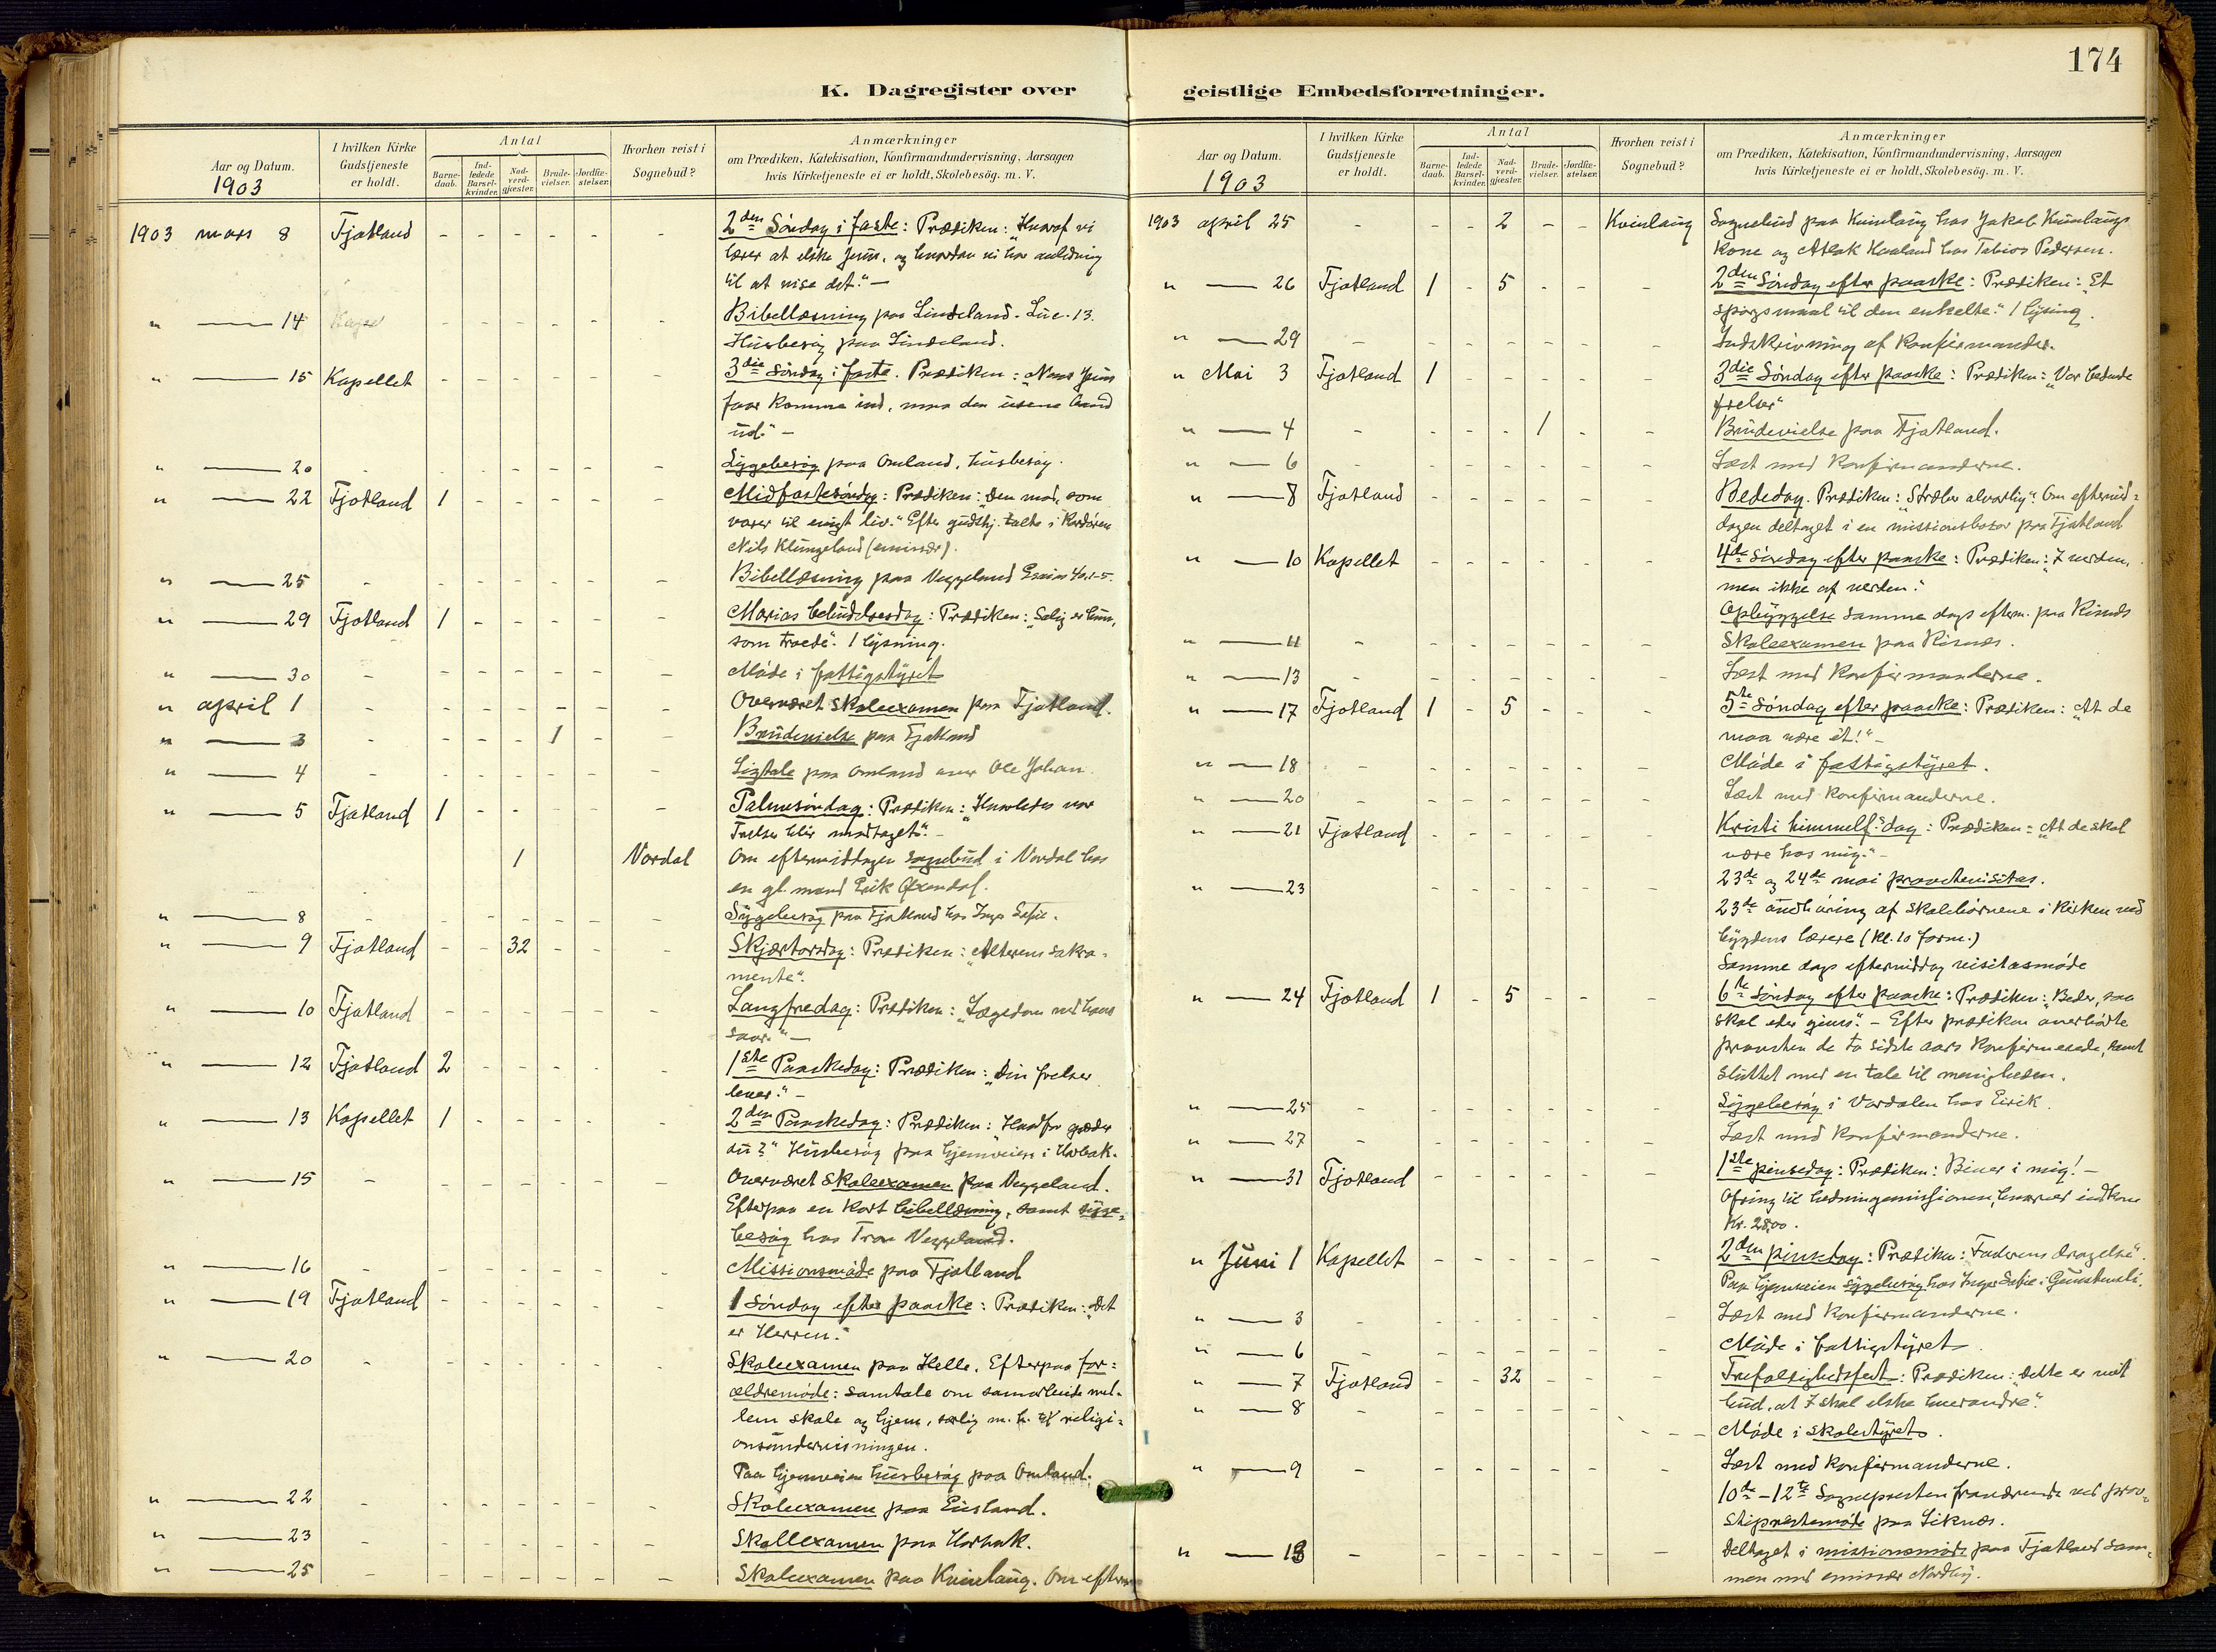 174
K. Dagregister over geistlige Embedsforretninger.
Aar og Datum.
1903
I hvilken Kirke Gudstjeneste er holdt.
Antal
Barnedaab.
Indledede Barselkvinder.
Nadverdgjester.
Brudevielser.
Jordfæstelser.
Hvorhen reist i Sognebud?
Anmærkninger
om Prædiken, Katekisation, Konfirmandundervisning, Aarsagen
hvis Kirketjeneste ei er holdt, Skolebesög. m. V.
1903 mars 8 Fjotland - - - - - - 2den Söndag i faste: Prædiken: "Hvoraf vi
lærer at elske Jesus, og hvordan vi har anledning
til at vise det." -
" 14 - - - - - - Bibellæsning paa Lindeland. Luc. 13.
Husbesög paa Lindeland.
" 15 Kapellet - - - - - - 3die Söndag i faste. Prædiken: "Naar Jesus
faar komme ind, maa den urene aand
ud." -
" 20 - - - - - - - Sygebesög paa Omland, husbesög.
" 22 Fjotland 1 - - - - - Midfastesöndag: Prædiken: "Den mad, som
varer til evigt liv." Efter gudstj. talte i Kordören
Nils Klungeland (emissær).
" 25 - - - - - - - Bibellæsning paa Veggeland Esaias 40,1-5.
" 29 Fjotland 1 - - - - - Marias bebudelsesdag: Prædiken: "Salig er hun,
som troede". 1 lysning.
" 30 - - - - - - - Möde i fattigstyret
" april 1 - - - - - - - Overværet skoleexamen paa Fjotland.
" 3 - - - - 1 - - Brudevielse paa Fjotland
" 4 - - - - - - - Ligtale paa Omland over Ole Johan.
" 5 Fjotland 1 - - - - - Palmesöndag: Prædiken: "Hvorledes vor
frelser blir modtaget". -
1 Vordal Om eftermiddagen sognebud i Vordal hos
en gl. mand Eirik
" 8 - - - - - - - Sygebesög paa Fjotland hos Inga Sofie.
" 9 Fjotland - - 32 - - - Skjærtorsdag: Prædiken: "Alterens sakra-
mente".
" 10 Fjotland - - - - - - Langfredag: Prædiken: "Lægedom ved hans
saar." -
" 12 Fjotland 2 - - - - - 1ste Paaskedag: Prædiken: "Din frelser
lever." -
" 13 Kapellet 1 - - - - - 2den Paaskedag: Prædiken: "Hvorfor græder
du?" Husbesög paa hjemveien i Harbak.
" 15 - - - - - - - Overværet Skoleexamen paa Veggeland.
Efterpaa en kort bibellæsning, samt syge-
besög hos Tron Veggeland.
" 16 - - - - - - - Missionsmöde paa Fjotland
" 19 Fjotland - - - - - - 1 Söndag efter paaske: Prædiken: "Det
er Herren."
" 20 - - - - - - - Skoleexamen paa Helle. Efterpaa for-
ældremöde: samtale om samarbeide mel-
lem skole og hjem, særlig m. h. til religi-
onsundervisningen.
Paa hjemveien husbesög paa Omland.
" 22 - - - - - - - Skoleexamen paa Eiesland.
" 23 - - - - - - - Skoleexamen paa Harbak.
" 25 - - - - - - - Skoleexamen paa Kvinlaug. Om efterm
Aar og Datum.
1903
I hvilken Kirke Gudstjeneste er holdt.
Antal
Barnedaab.
Indledede Barselkvinder.
Nadverdgjester.
Brudevielser.
Jordfæstelser.
Hvorhen reist i Sognebud?
Anmærkninger
om Prædiken, Katekisation, Konfirmandundervisning, Aarsagen
hvis Kirketjeneste ei er holdt, Skolebesög. m. V.
1903 april 25 - - - 2 - - Kvinlaug Sognebud paa Kvinlaug hos Jakob Kvinlaugs
kone og Aslak Haaland hos Tobias Pedersen.
" 26 Fjotland 1 - 5 - - - 2den Söndag efter paaske: Prædiken: "Et
spörgsmaal til den enkelte." 1 lysning.
" 29 - - - - - - - Indskrivning af konfirmander.
" Mai 3 Fjotland 1 - - - - - 3die Söndag efter paaske: Prædiken: "Vor bedende
frelser"
" 4 - - - - 1 - - Brudevielse paa Fjotland.
" 6 - - - - - - - Læst med konfirmanderne.
" 8 Fjotland - - - - - - Bededag. Prædiken: "Stræber alvorlig". Om eftermid-
dagen deltaget i en missionsbasar paa Fjotland
" 10 Kapellet - - - - - - 4de Söndag efter paaske: Prædiken: "I verden,
men ikke af verden."
Opbyggelse samme dags efterm. paa Risnes
" 11 - - - - - - - Skoleexamen paa Risnes.
" 13 - - - - - - - Læst med konfirmanderne.
" 17 Fjotland 1 - 5 - - - 5te Söndag efter paaske: Prædiken: "At de
maa være ét!" -
" 18 - - - - - - - Möde i fattigstyret.
" 20 - - - - - - - Læst med konfirmanderne.
" 21 Fjotland - - - - - - Kristi himmelf.sdag: Prædiken: "At de skal
være hos mig." -
" 23 - - - - - - 23de og 24de mai provstevisitas.
23de audhöring af skolebörnene i kirken ved
bygdens lærere (kl. 10 form.)
Samme dags eftermiddag visitasmöde
" 24 Fjotland 1 - 5 - - - 6te Söndag efter paaske: Prædiken: "Beder, saa
skal eder gives". - Efter prædiken overhörte
provsten de to sidste aars konfirmerede, samt
sluttet med en tale til menigheden.
" 25 - - - - - - - Sygebesög i Vordalen hos Eirik.
" 27 - - - - - - - Læst med konfirmanderne.
" 31 Fjotland - - - - - - 1ste pinsedag: Prædiken: Bliver i mig! -
Ofring til hedningemissionen, hvorved indkom
Kr. 28,00.
" Juni 1 Kapellet - - - - - - 2den pinsedag: Prædiken: "Faderens dragelse".
Paa hjemveien sygebesög hos Inger Sofie i
" 3 - - - - - - - Læst med konfirmanderne.
" 6 - - - - - - - Möde i fattigstyret.
" 7 Fjotland - - 32 - - - Trefoldighedsfest: Prædiken: "Dette er mit
bud, at I skal elske hverandre".
" 8 - - - - - - - Möde i skolestyret.
" 9 - - - - - - - Læst med konfirmanderne.
10de - 12te Sognepresten fraværende ved prov-
stiprestemöde paa Liknes.
" 13 - - - - - - - Deltaget i missionsmöde paa Fjotland sam-
men med emissær